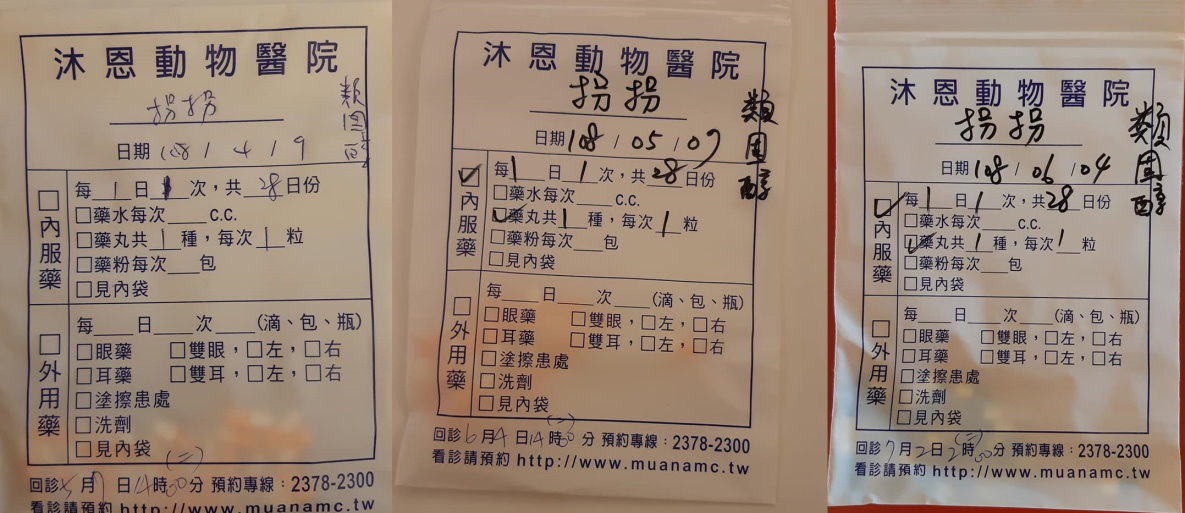 沐恩動物醫院
拐拐
類固醇
日期 108 / 4 / 9
□內服藥
每 1 日 1 次，共 28 日份
□藥水每次____c.c.
□藥丸共 1 種，每次 1 粒
□藥粉每次___包
□見內袋
□外用藥
每____日____次____(滴、包、瓶)
□眼藥 □雙眼，□左，□右
□耳藥 □雙耳，□左，□右
□塗擦患處
□洗劑
□見內袋
(二)
回診 5 月 7 日 14 時 30 分 預約專線：2378-2300
看診請預約 http://www.muanamc.tw
沐恩動物醫院
拐拐
類固醇
日期 108 / 05 / 07
☑內服藥
每 1 日 1 次，共 28 日份
□藥水每次____c.c.
☑藥丸共 1 種，每次 1 粒
□藥粉每次___包
□見內袋
□外用藥
每____日____次____(滴、包、瓶)
□眼藥 □雙眼，□左，□右
□耳藥 □雙耳，□左，□右
□塗擦患處
□洗劑
□見內袋
(二)
回診 6 月 4 日 14 時 30 分 預約專線：2378-2300
看診請預約 http://www.muanamc.tw
沐恩動物醫院
拐拐
類固醇
日期 108 / 06 / 04
☑內服藥
每 1 日 1 次，共 28 日份
□藥水每次____c.c.
☑藥丸共 1 種，每次 1 粒
□藥粉每次___包
□見內袋
□外用藥
每____日____次____(滴、包、瓶)
□眼藥 □雙眼，□左，□右
□耳藥 □雙耳，□左，□右
□塗擦患處
□洗劑
□見內袋
(二)
回診 7 月 2 日 2 時 30 分 預約專線：2378-2300
看診請預約 http://www.muanamc.tw